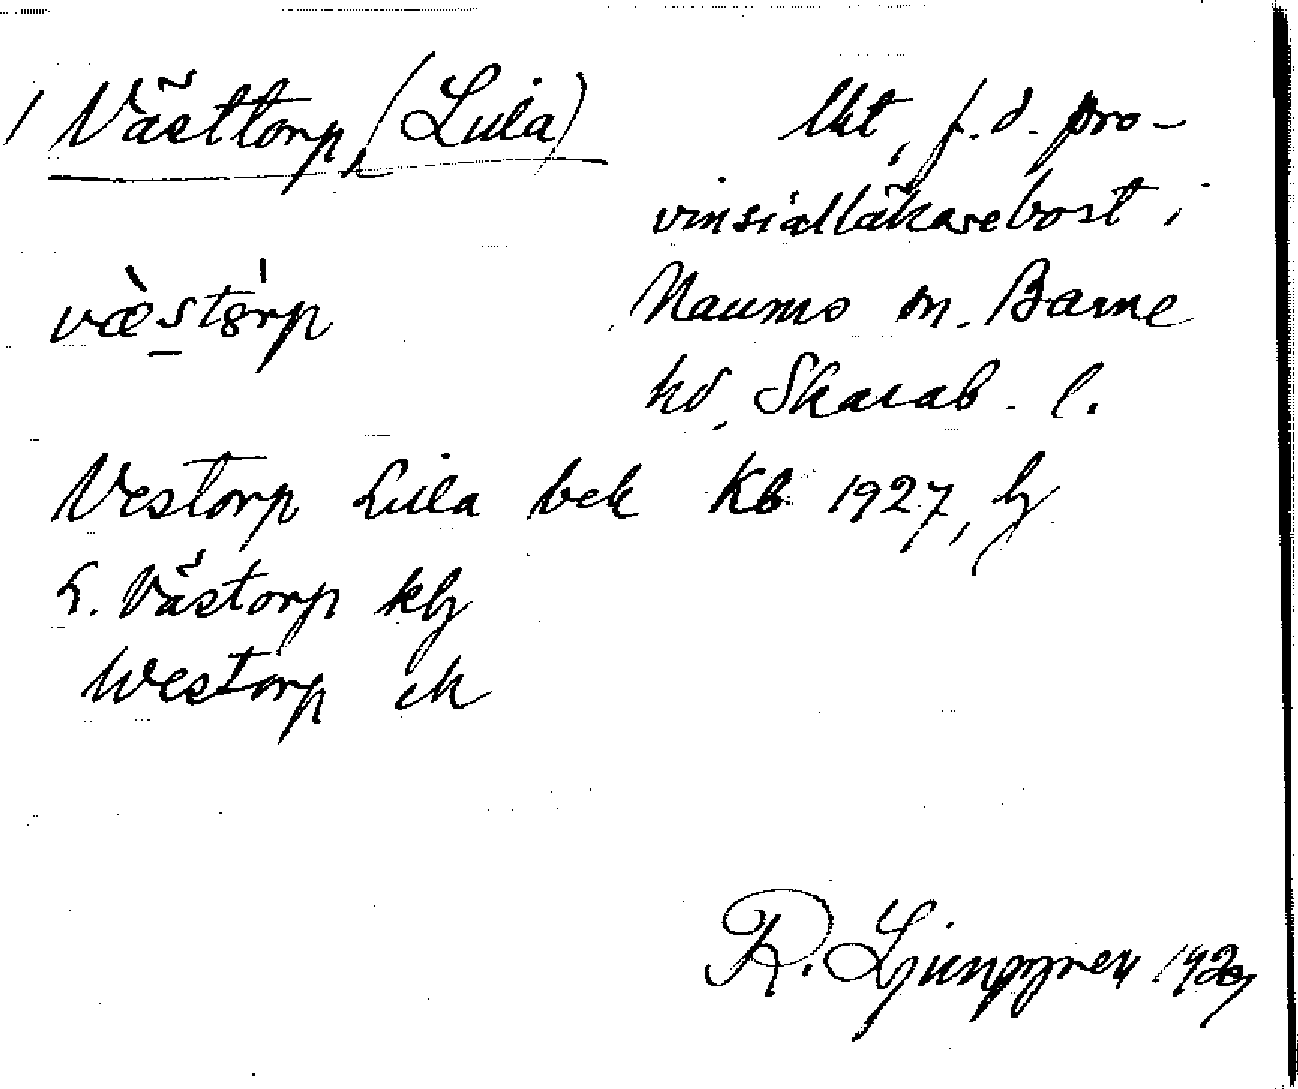 / Västtorp, (Lilla)
Ukt, f.d. pro-
vinsialläkarebost i
Naums sn. Barne
hd, Skarab. l.
væstôrp
Vestorp Lilla bek Kb 1927, hj
L. Västorp klj
Westorp ek
R. Ljunggren 1927